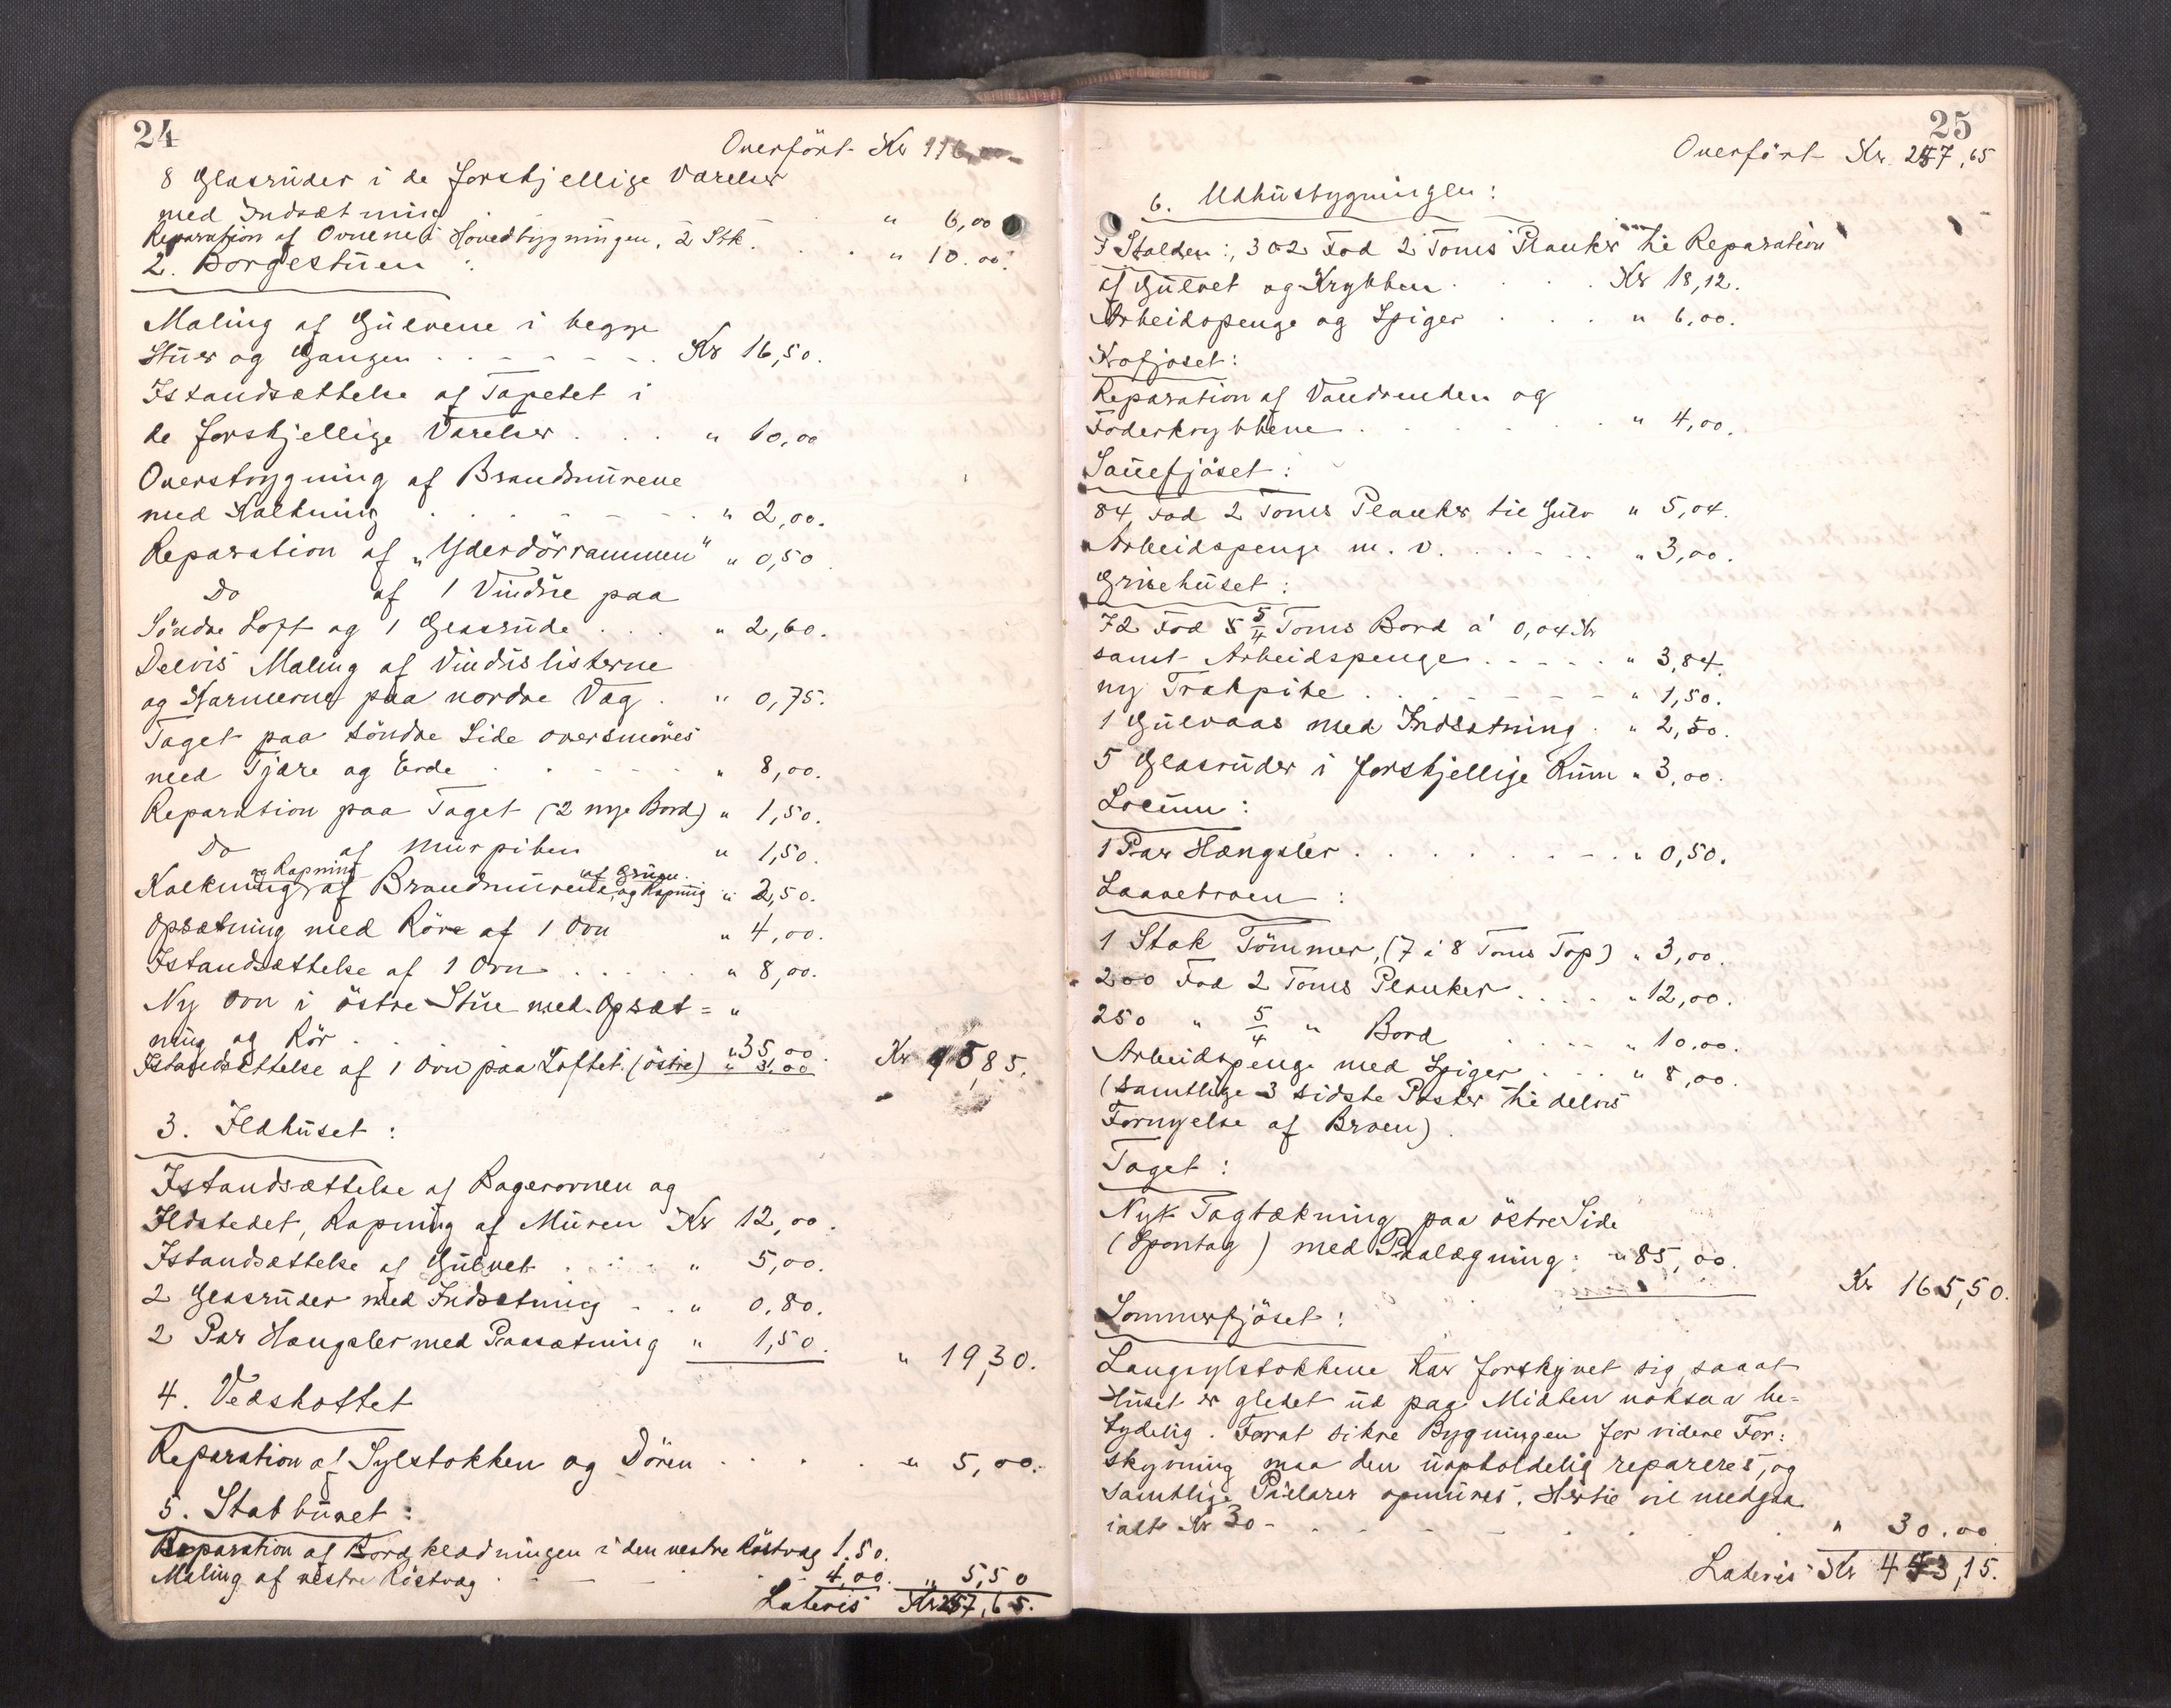 24
Overført Kr 116,00
8 Glasruder i de forskjellige Værelser
med Indsætning " 6,00
Reparation af Ovnene i Hovedbygningen, 2 Stk. " 10.00.
2. Borgestuen :
Maling af Gulvene i begge
Stuer og Gangen Kr 16,50.
Istandsættelse af Tapetet i
de forskjellige Værelser " 10,00
Overstrygning af Brandmurene
med Kalkning " 2,00.
Reparation af „Yderdörrammen" " 0,50.
Do af 1 Vindue paa
Söndre Loft og 1 Glasrude " 2,60.
Delvis Maling af Vinduslisterne
og Karmerne paa nordre Væg " 0,75.
Taget paa söndre Side oversmöres
med Tjære og Erde " 8,00.
Reparation paa Taget (2 nye Bord) " 1,50.
Do af Murpiben " 1,50.
Kalkning og Rapning af Brandmurene af Gruen og Rapning " 2,50.
Opsætning med Röre af 1 Ovn " 4,00.
Istandsættelse af 1 Ovn " 8,00.
Ny Ovn i östre Stue med Opsæt= "
ning og Rör " 35,00.
Istandsættelse af 1 Ovn paa Loftet (östre) " 3,00 Kr 95,85.
3. Ildhuset :
Istandsættelse af Bagerovnen og
Ildstedet, Rapning af Muren Kr 12,00.
Istandsættelse af Gulvet " 5,00.
2 Glasruder med Indsætning " 0,80.
2 Par Hængsler med Paasætning " 1,50. " 19,30.
4. Vedskottet
Reparation af Sylstokken og Dören " 5,00.
5. Stabburet :
Reparation af Bordklædningen i den vestre Röstvæg 1.50.
Maling af vestre Röstvæg 4,00. " 5,50
Lateris Kr 257,65.
25
Overfört Kr. 257,65
6. Udhusbygningen :
I Stalden :, 302 Fod 2 Toms Planker til Reparation
af Gulvet og Krybben Kr 18,12.
Arbeidspenge og Spiger " 6,00.
Kofjöset :
Reparation af Vandrenden og
Foderkrybbene " 4,00.
Sauefjöset :
84 Fod 2 Toms Planker til Gulv " 5,04.
Arbeidspenge m. v. " 3,00.
Grisehuset :
72 Fod 5/4 Toms Bord á 0,04 Kr
samt Arbeidspenge " 3,84.
ny Trækpibe " 1,50.
1 Gulvaas med Indsætning " 2,50.
5 Glasruder i forskjellige Rum " 3,00.
Locum :
1 Par Hængsler " 0,50.
Laavebroen :
1 Stok Tömmer, (7 á 8 Toms Top) " 3,00.
200 Fod 2 Toms Planker " 12,00.
250 " 5/4 " Bord " 10.00.
Arbeidspenge med Spiger " 8,00.
(samtlige 3 sidste Poster til delvis
Fornyelse af Broen).
Taget :
Nyt Tagtækning paa östre Side
(Spontag) med Paalægning : " 85,00.
Kr 165,50.
Sommerfjöset :
Langsylstokkene har forskjövet sig, saaat
Huset er gledet ud paa Midten noksaa be=
tydelig. Forat sikre Bygningen for videre For=
skyvning maa den uopholdelig repareres, og
samtlige Pillarer opmures. Hertil vil medgaa
ialt Kr 30 - " 30.00
Lateris Kr 453,15.